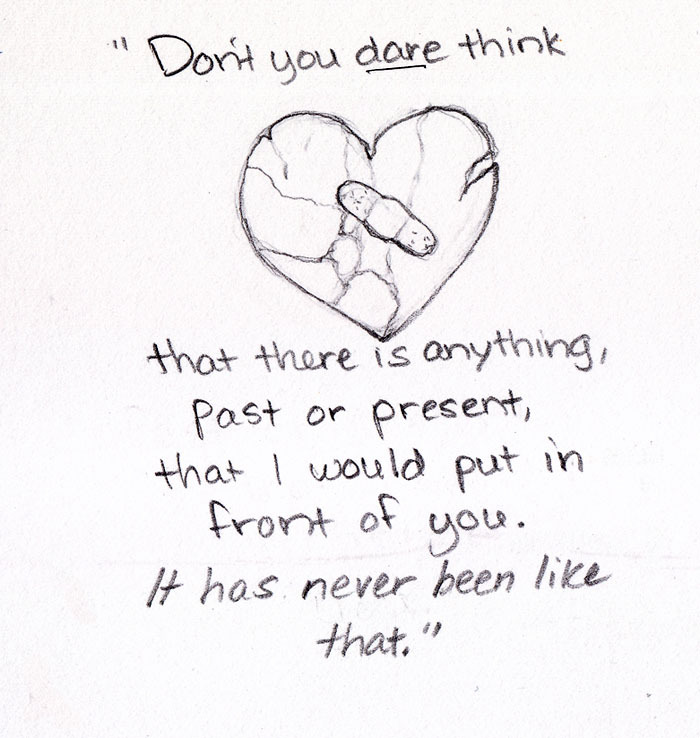 " Don't you dare think
that there is anything,
past or present,
that I would put in
front of you.
It has never been like
that."